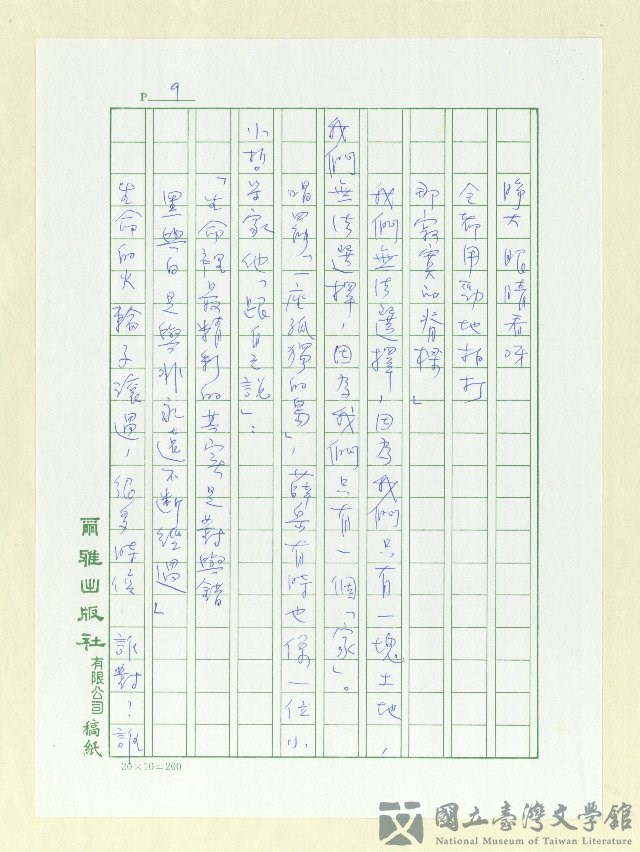 P 9
睜大 眼睛看呀
全都用勁地拍打
那寂寞的脊樑」
我們無法選擇，因為我們只有一塊土地，
我們無法選擇，因為我們只有一個「家」。
唱罷「一座孤獨的島」，薛岳有時也像一位小
小哲學家 他「跟自己說」：
「生命裡最精彩的其實是對與錯
黑與白 是與非永遠不斷經過」
生命的火輪子滾過，很多時候 誰對？誰
爾雅出版社有限公司稿紙
20×10=200
國立臺灣文學館
National Museum of Taiwan Literature